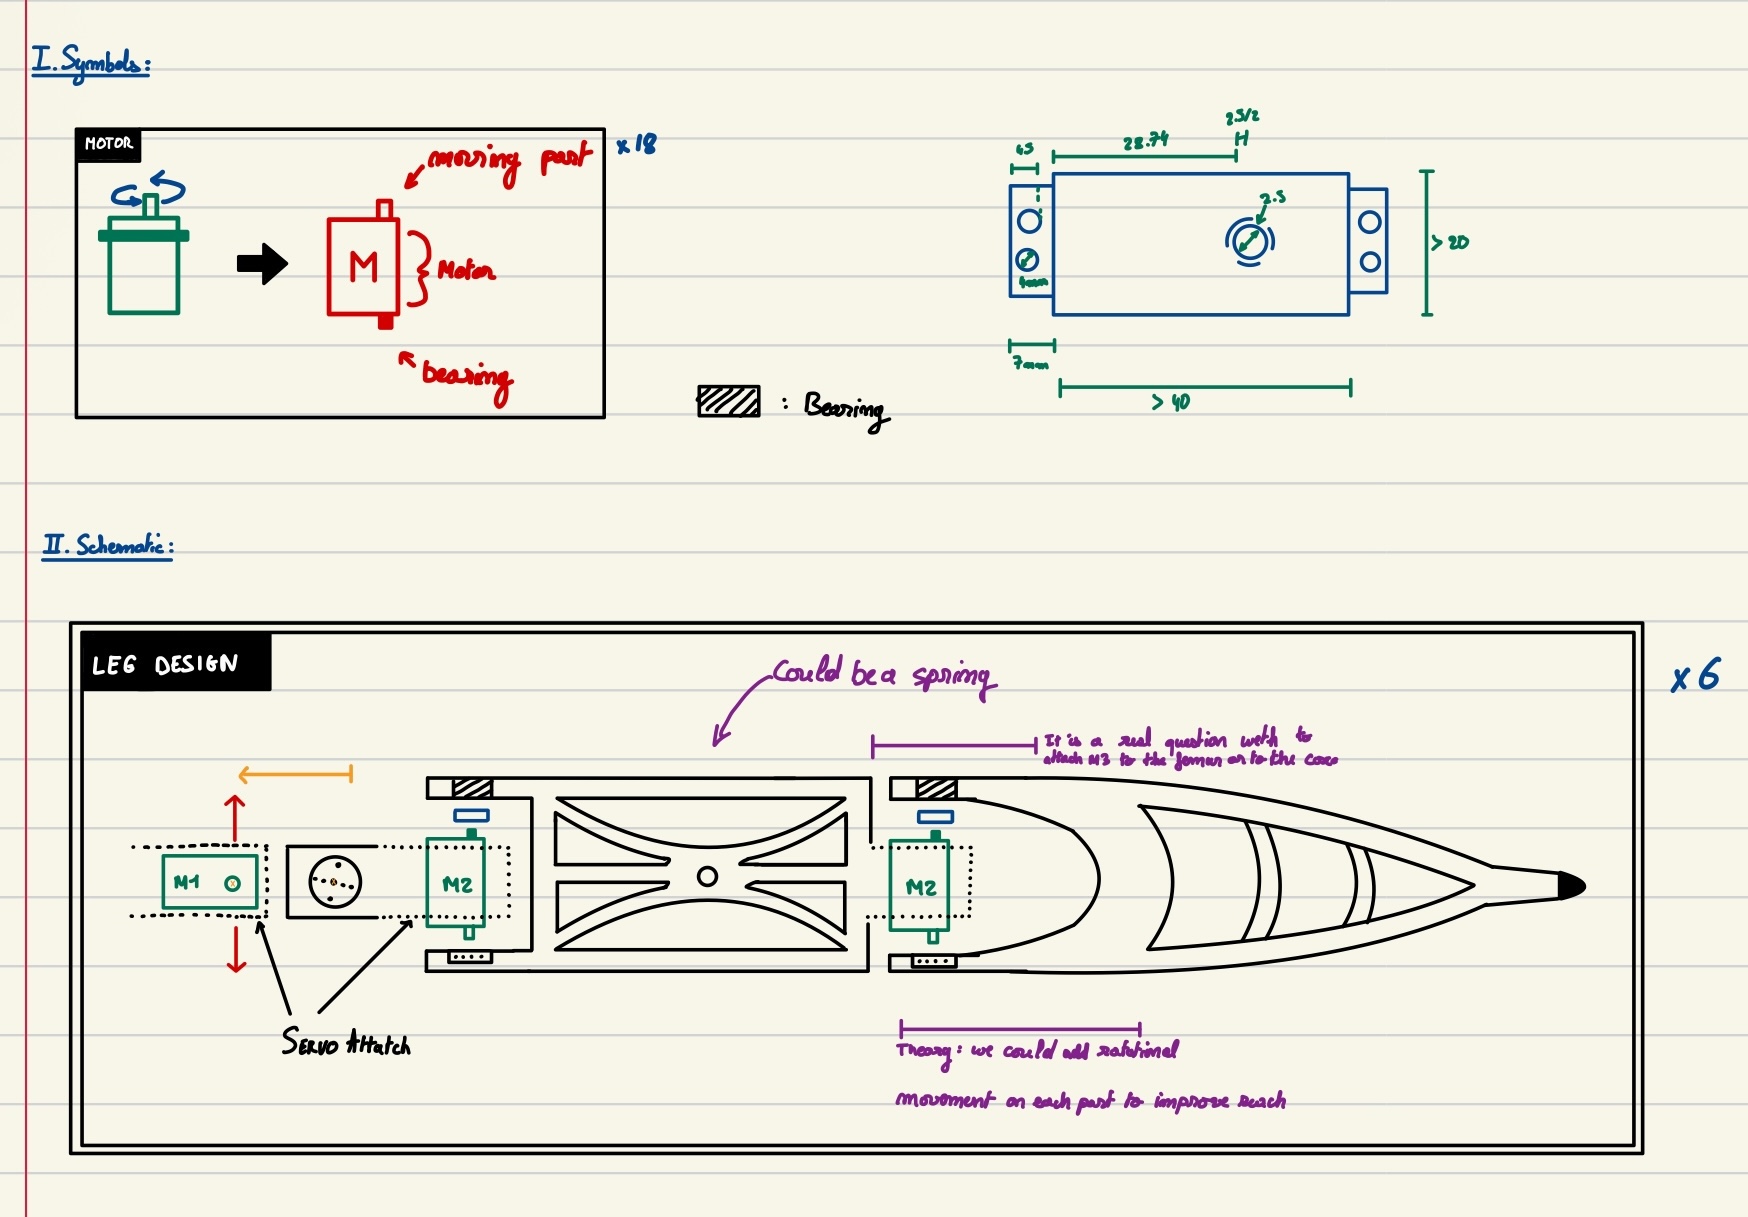 I. Symbols:
MOTOR
x 18
moving part
M
Motor
bearing
: Bearing
28.74
2.5/2
2.5
4mm
7mm
> 40
> 20
II. Schematic:
LEG DESIGN
x 6
Could be a spring
It is a real question weth to
attach M3 to the femur or to the
M1
M2
M2
Servo Attatch
Theory: we could add rotational
movement on each part to improve reach